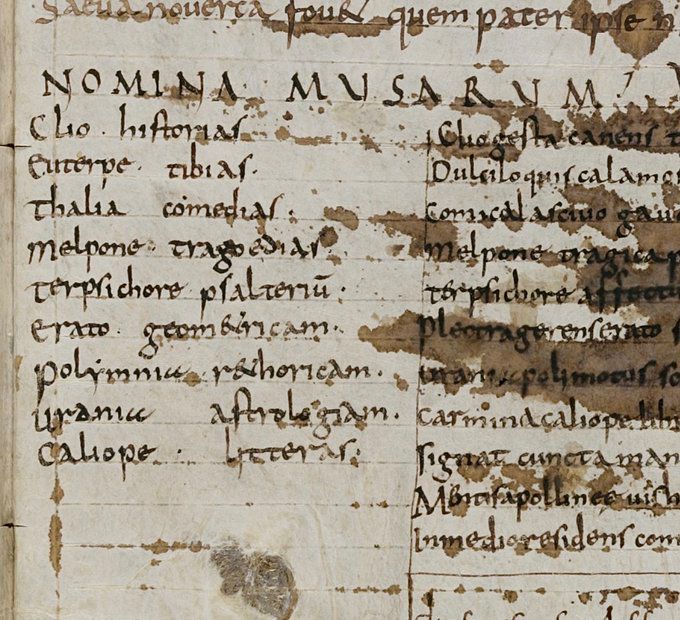 Saeua nouerca fouet quem pater ipse n
NOMINA MUSARUM.
Clio. historias
Euterpe. tibias.
Thalia comedias.
Melpone. tragoedias
Terpsichore psalteriū.
Erato. geometricam.
Polymnia rethoricam.
Urania astrologiam.
Caliope. litteras.
Clio gesta canens t
Dulciloquis calamos
Comica lasciuo gau
Melpone tragica p
Terpsichore affectus
Plectra gerens erato s
urania polimotus so
Carmina caliope libr
signat cuncta man
Mentis apollinee uis h
In medio residens com